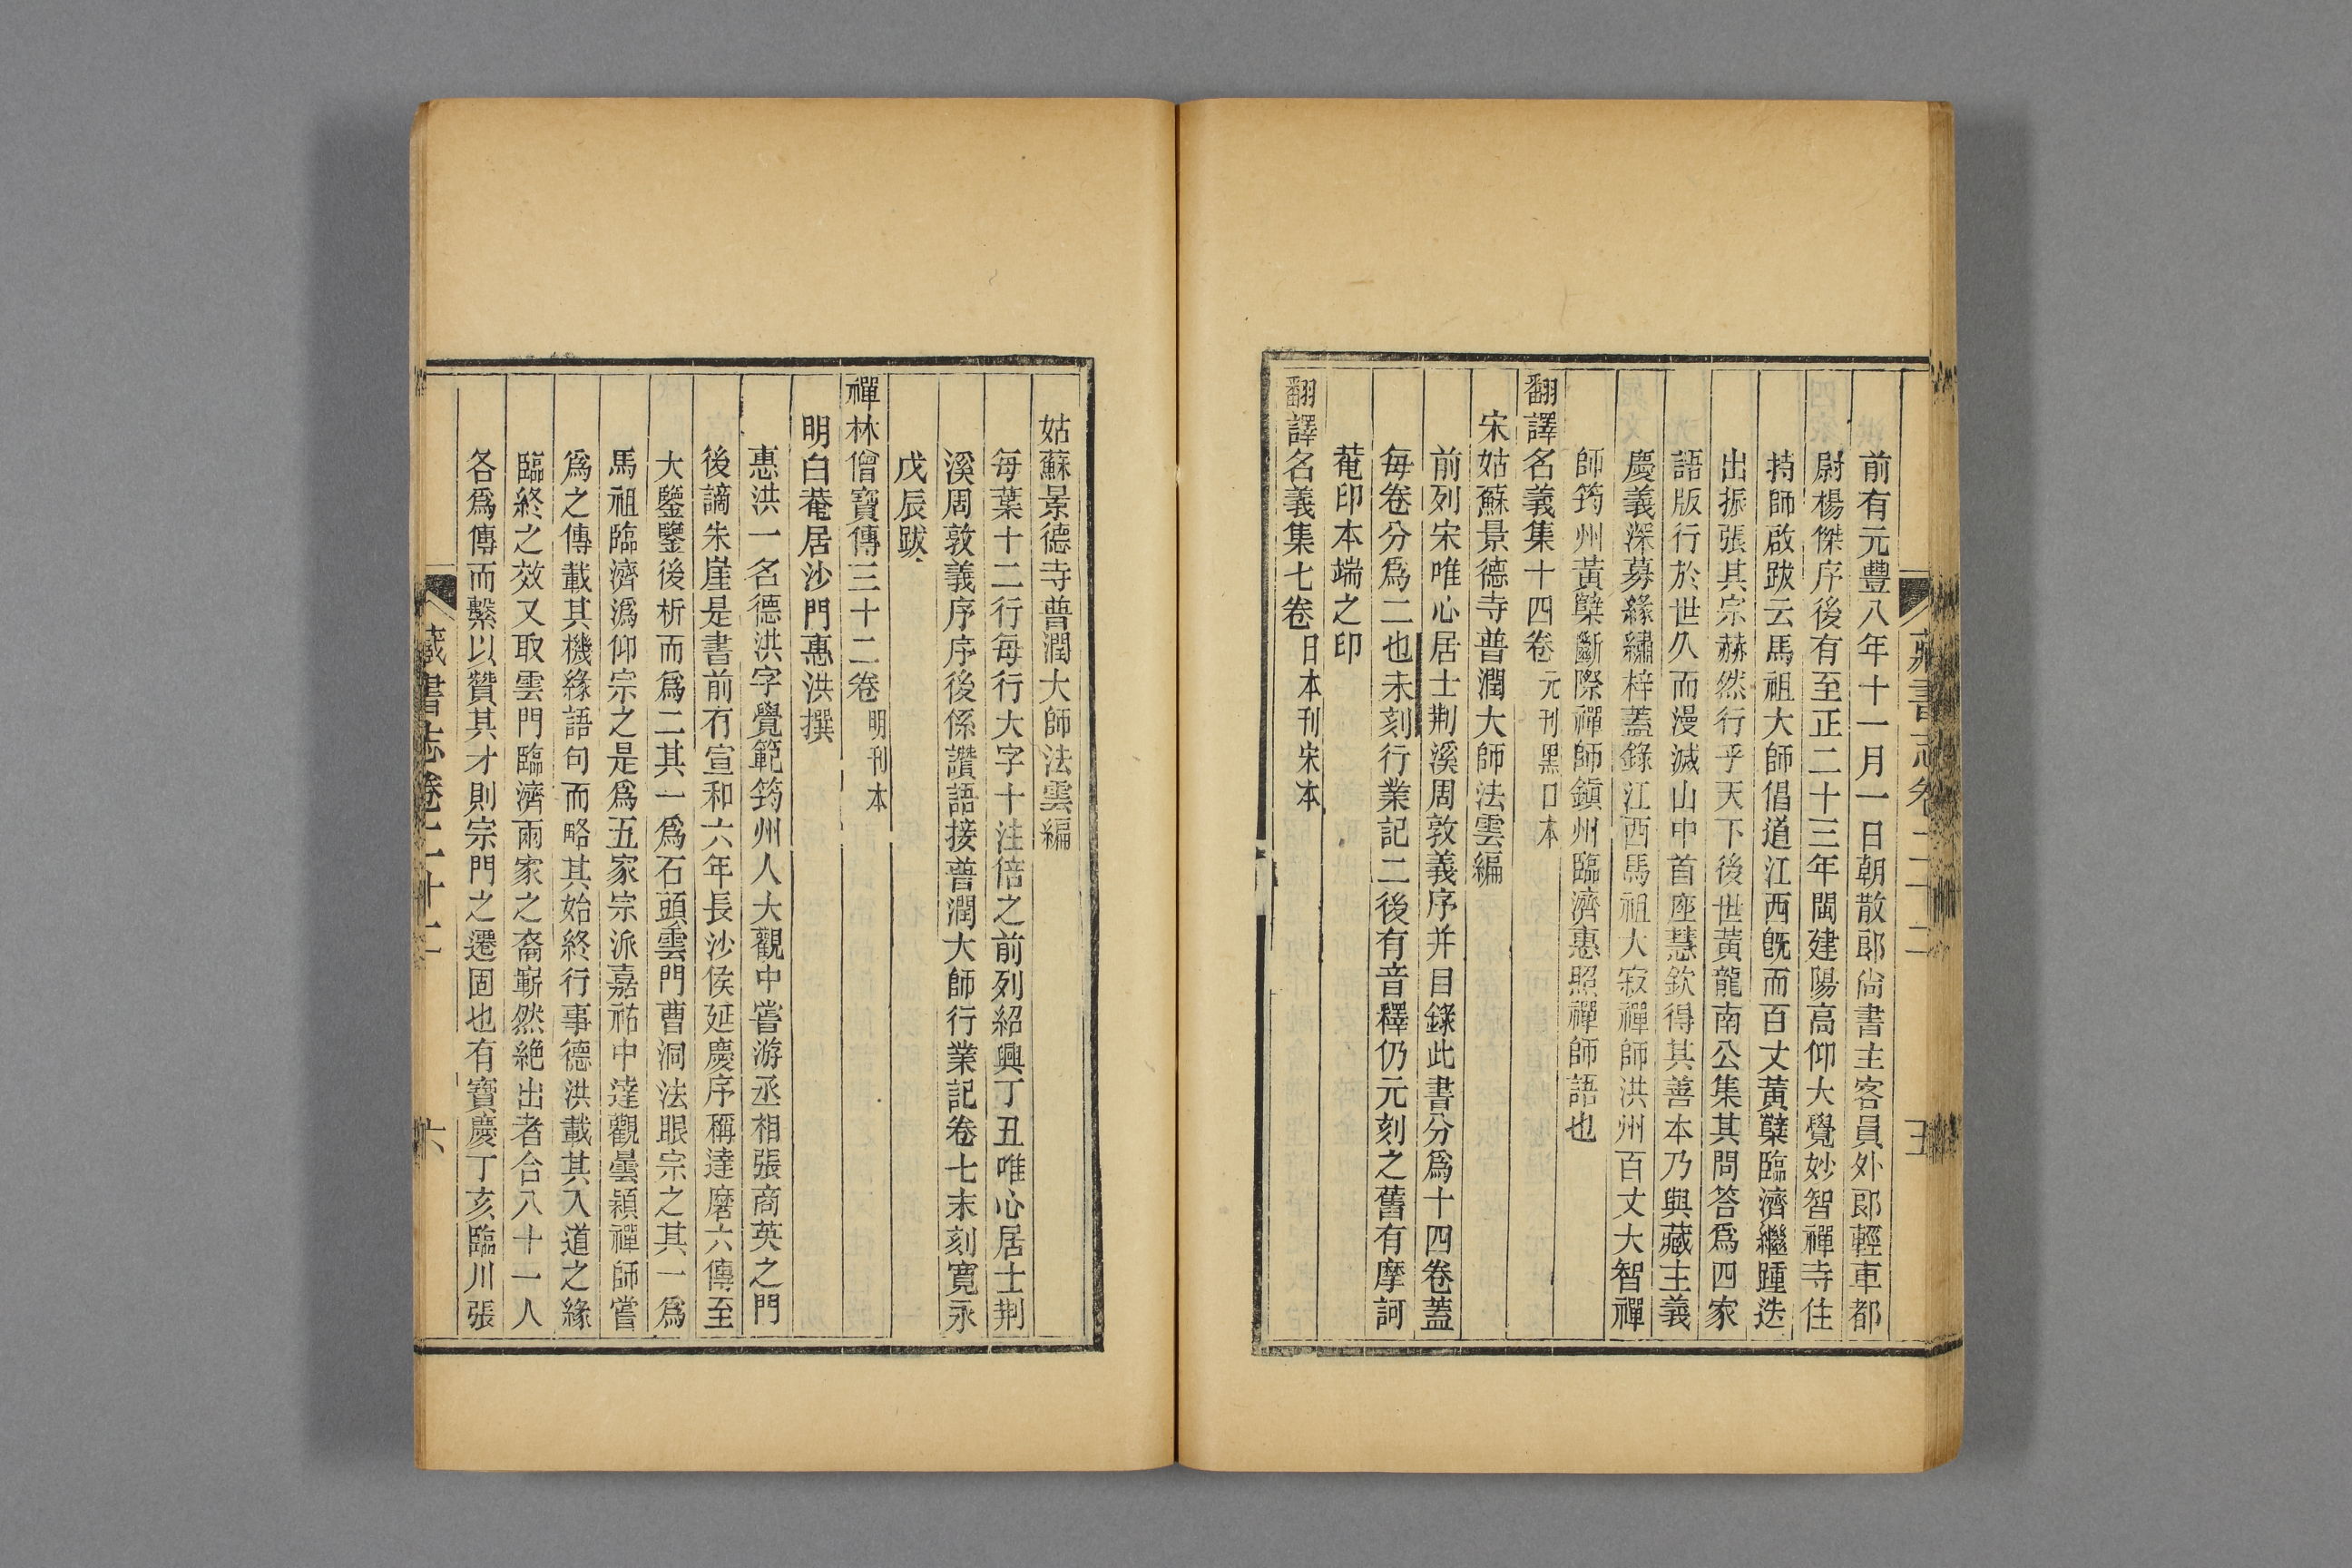 前有元豐八年十一月一日朝散郎尚書主客員外郎輕車都
尉楊傑序後有至正二十三年閩建陽高仰大覺妙智禪寺住
持師啟跋云馬祖大師倡道江西旣而百丈黃檗臨濟繼踵迭
出振張其宗赫然行乎天下後世黃龍南公集其問答爲四家
語版行於世久而漫滅山中首座慧欽得其善本乃與藏主義
慶義深募緣繡梓蓋錄江西馬祖大寂禪師洪州百丈大智禪
師筠州黃檗斷際禪師鎭州臨濟惠照禪師語也
翻譯名義集十四卷 元刊黑口本
宋姑蘇景德寺普潤大師法雲編
前列宋唯心居士荆溪周敦義序并目錄此書分爲十四卷蓋
每卷分爲二也末刻行業記二後有音釋仍元刻之舊有摩訶
菴印本端之印
翻譯名義集七卷 日本刊宋本
藏書志卷二十二
姑蘇景德寺普潤大師法雲編
每葉十二行每行大字十注倍之前列紹興丁丑唯心居士荆
溪周敦義序序後係讚語接普潤大師行業記卷七末刻寬永
戊辰跋
禪林僧寶傳三十二卷 明刊本
明白菴居沙門惠洪撰
惠洪一名德洪字覺範筠州人大觀中嘗游丞相張商英之門
後謫朱崖是書前有宣和六年長沙侯延慶序稱達磨六傳至
大鑒鑒後析而爲二其一爲石頭雲門曹洞法眼宗之其一爲
馬祖臨濟潙仰宗之是爲五家宗派嘉祐中達觀曇穎禪師嘗
爲之傳載其機緣語句而略其始終行事德洪載其入道之緣
臨終之效又取雲門臨濟兩家之裔嶄然絶出者合八十一人
各爲傳而繫以贊其才則宗門之遷固也有寶慶丁亥臨川張
藏書志卷二十二
六